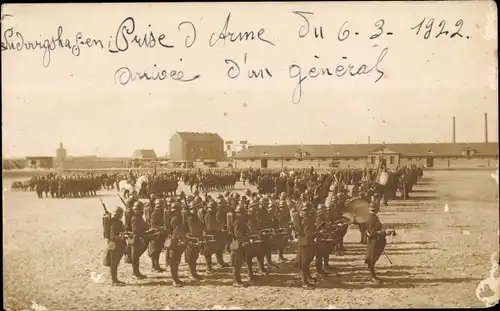 Ludwigshafen: Prise d'Arme du 6-3-1922.
arrivée d'un général